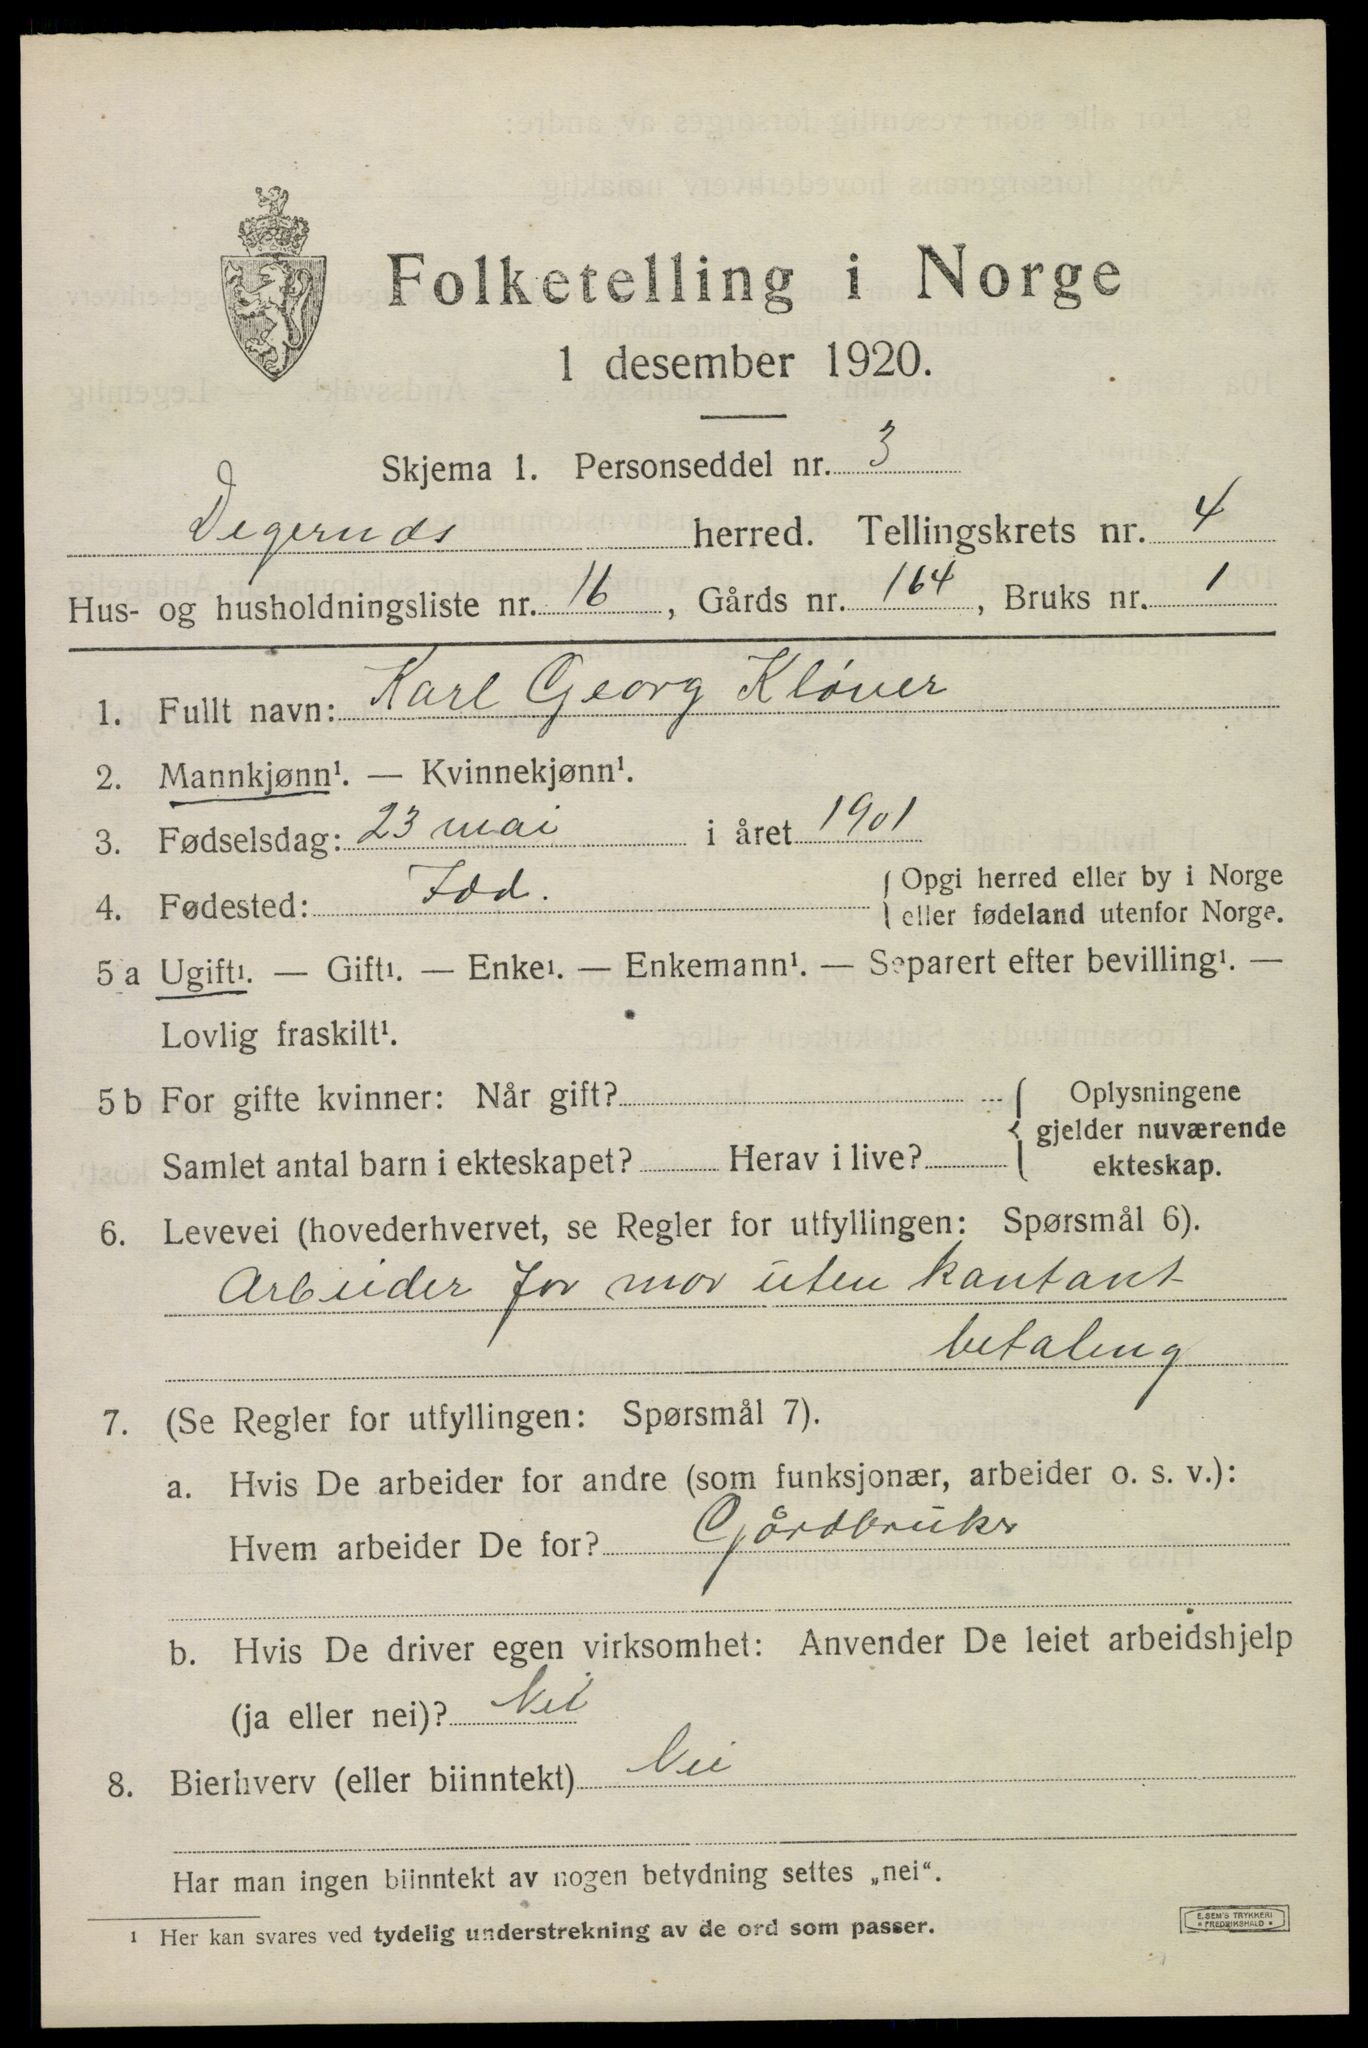 Folketelling i Norge
1 desember 1920.
Skjema 1. Personseddel nr. 3
Degernds herred. Tellingskrets nr. 4
Hus- og husholdningsliste nr. 16, Gårds nr. 164, Bruks nr. 1
1. Fullt navn: Karl Georg Kløver
2. Mannkjønn¹. — Kvinnekjønn¹.
3. Fødselsdag: 23 mai i året 1901
4. Fødested: Idd. { Opgi herred eller by i Norge
eller fødeland utenfor Norge.
5 a Ugift¹. — Gift¹. — Enke¹. — Enkemann¹. — Separert efter bevilling¹. —
Lovlig fraskilt¹.
5 b For gifte kvinner: Når gift? { Oplysningene
gjelder nuværende
Samlet antal barn i ekteskapet? Herav i live? ekteskap.
6. Levevei (hovederhvervet, se Regler for utfyllingen: Spørsmål 6).
Arbeider for mor uten kontant
betaling
7. (Se Regler for utfyllingen: Spørsmål 7).
a. Hvis De arbeider for andre (som funksjonær, arbeider o. s. v.):
Hvem arbeider De for? Gårdbruker
b. Hvis De driver egen virksomhet: Anvender De leiet arbeidshjelp
(ja eller nei)? Nei
8. Bierhverv (eller biinntekt) Nei
Har man ingen biinntekt av nogen betydning settes „nei“.
¹ Her kan svares ved tydelig understrekning av de ord som passer.
E. SEM'S TRYKKERI
* FREDRIKSHALD *